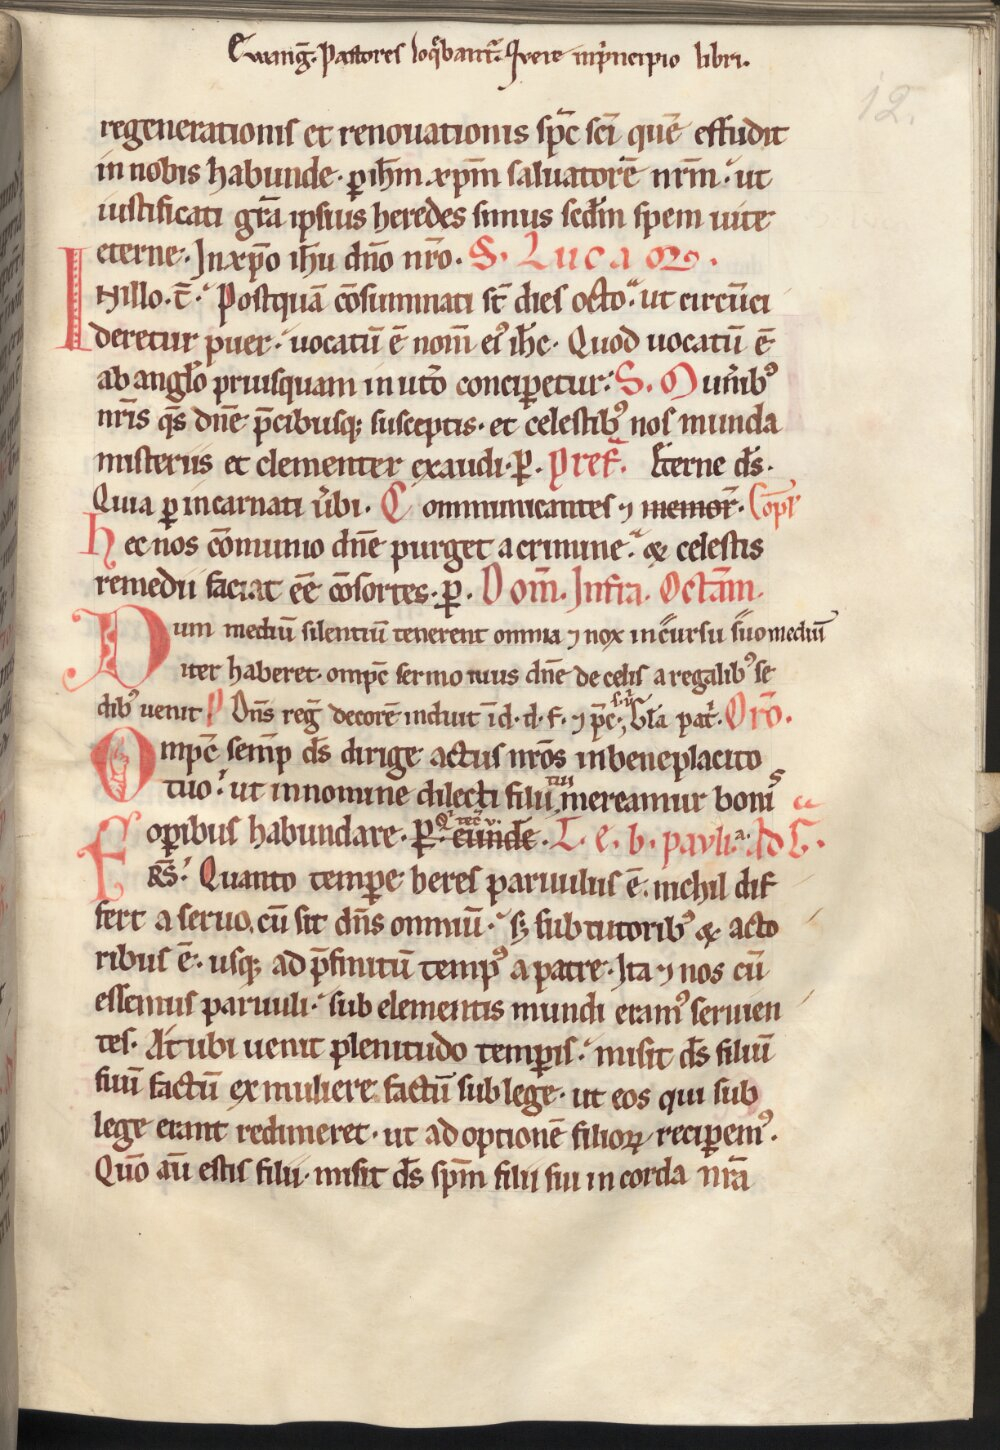 Ewang̅. Pastores loq̅bant᷑. Q̇rere inp᷑ncipio libri.
12.
regenerationis et renouationis sp̅c sc̅i que̅ effudit
in nobis habunde. ꝑ ih̅m xp̅m saluatore̅ nr̅m. ut
iustificati gr̅a ipsius heredes simus sc̅dm spem uite
eterne. Inxp̅o ih̅u dn̅o nr̅o. S. Lucam.
INillo. t̅. Postqua̅ co̅summati st̅ dies octo. ut circu̅ci
deretur puer. uocatu̅ e̅ nom̅ eiꝰ ih̅c. Quod uocatu̅ e̅
ab angl̅o priusquam inut᷑o conciꝑetur. S. Munib᷑ꝰ
nr̅is q̅s dn̅e p̅cibusqꝫ susceptis. et celestibꝰ nos munda
misteriis et clementer exaudi. P̲. Pref̅. Et̅erne ds̅.
Quia ꝑ incarnati u᷑bi. Communicantes ⁊ memor̅. Co̅pl᷑
hec nos co̅munio dn̅e purget a crimine. & celestis
remedii faciat ee̅ co̅sortes. P̲. Dom̅. Infra. Octa̅m.
Dum mediu̅ silentiu̅ tenerent omnia ⁊ nox in cursu suo mediu̅
iter haberet. omp̅c sermo tuus dn̅e de celis a regalibꝰ se
dibꝰ uenit P Dn̅s reg̅ decore̅ induit i̅d. d. f. ⁊ p̅c; Gl̅a pat᷑. Oro̅.
Omp̅c semp̅ ds̅ dirige actus nr̅os inbeneplacito
tuo. ut innomine dilecti filii tui mereamur bonis
operibus habundare. P̲. Q᷑ tec̅ u. eunde̅. L. e. b. pauli. a. ad G.
FRS̅. Quanto tempore heres paruulus e̅. nichil dif
fert a seruo. cu̅ sit dn̅s omniu̅. sꝫ sub tutoribꝰ & acto
ribus e̅. usqꝫ ad p̅finitu̅ tempꝰ a patre. Ita ⁊ nos cu̅
essemus paruuli. sub elementis mundi eramꝰ seruien
tes. At ubi uenit plenitudo temꝑis. misit ds̅ filiu̅
suu̅ factu̅ ex muliere factu̅ sub lege. ut eos qui sub
lege erant redimeret. ut adoptione̅ filioꝝ reciꝑemꝰ.
Quo̅ au̅ estis filii. misit ds̅ sp̅m filii sui in corda nr̅a